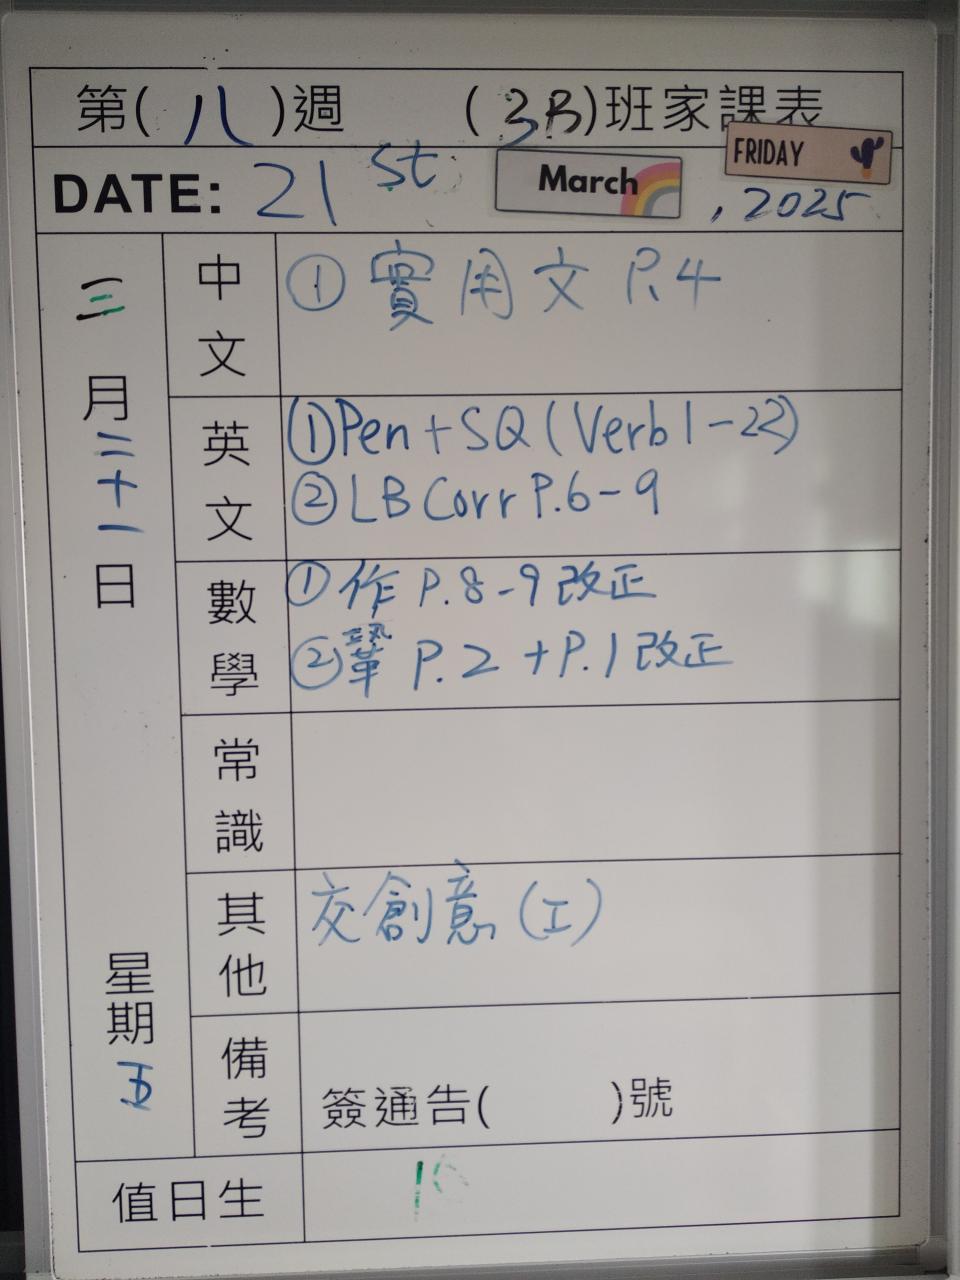 第(八)週 (3B)班家課表
FRIDAY
DATE: 21st March , 2025
三月二十一日
星期五
中文
①實用文 P.4
英文
①Pen + SQ (Verb 1-22)
②LB Corr P.6-9
數學
①作 P.8-9 改正
② P.2 + P.1 改正
常識
其他
交創意(工)
備考
簽通告( )號
值日生